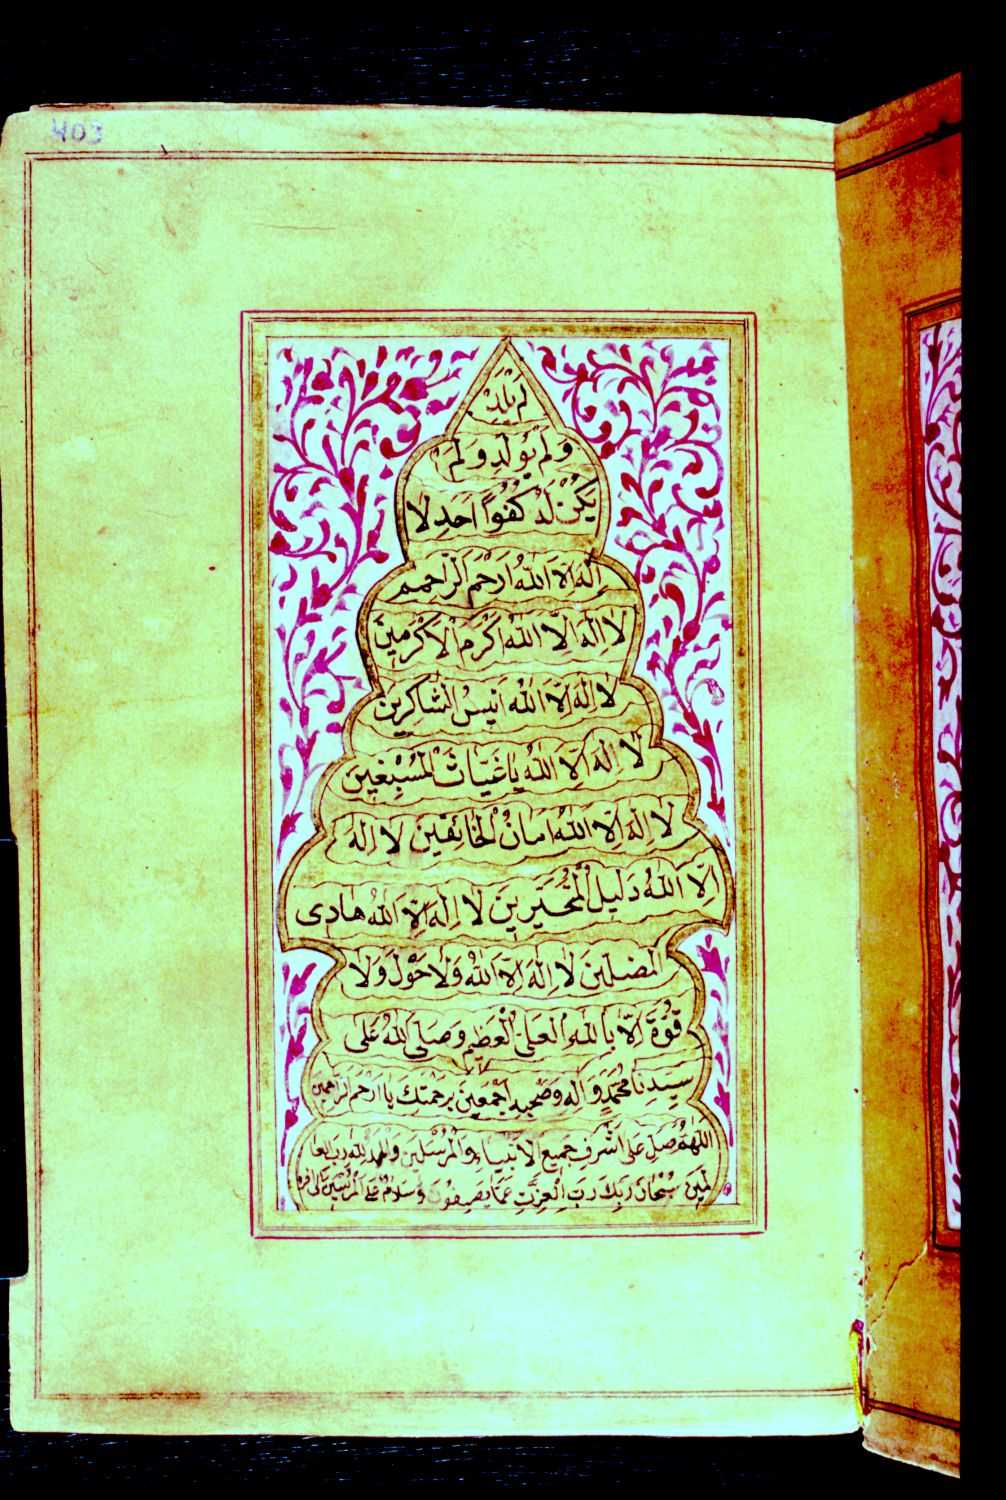 403
لم يلد
ولم يولد ولم
يكن له كفوا احد لا
اله الا الله ارحم الراحمين
لا اله الا الله اكرم الاكرمين
لا اله الا الله انيس الشاكرين
لا اله الا الله يا غياث
لا اله الا الله امان الخائفين لا اله
الا الله دليل المتحيرين لا اله الا الله هادى
المضلين لا اله الا الله ولا حول ولا
قوة الا بالله العلى العظيم وصلى الله على
سيدنا محمد واله وصحبه اجمعين برحمتك يا ارحم الراحمين
اللهم صل على اشرف جميع الانبياء والمرسلين والحمد لله رب العا
لمين سبحان ربك رب العزت عما يصفون وسلام على المرسلين